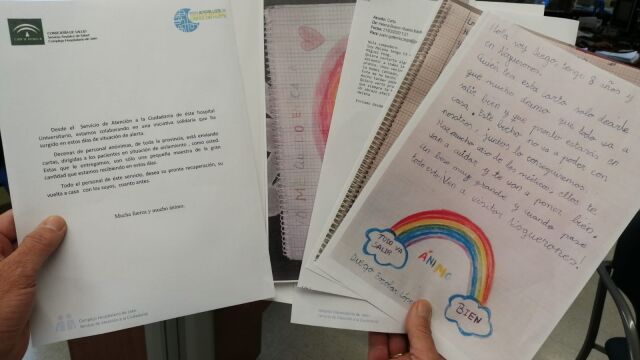 CONSEJERÍA DE SALUD
Servicio Andaluz de Salud
Complejo Hospitalario de Jaén
Desde el Servicio de Atención a la Ciudadanía de éste hospital
Universitario, estamos colaborando en una iniciativa solidaria que ha
surgido en estos días de situación de alerta.
Decenas de personal anónimas, de toda la provincia, está enviando
cartas, dirigidas a los pacientes en situación de aislamiento, como usted.
Estas que le entregamos, son sólo una pequeña muestra de la gran
cantidad que estamos recibiendo en estos días.
Todo el personal de éste servicio, desea su pronta recuperación, su
vuelta a casa con los suyos, cuanto antes.
Mucha fuerza y mucho ánimo.
Complejo Hospitalario de Jaén
Servicio de Atención a la Ciudadanía
Asunto: Carta
Hola soy Diego, tengo 8 años y
en Noguerones.
Quien lea esta carta solo decirle
que mucho ánimo que todo va a
salir bien y que pronto estarás en
casa. Este bicho no va a poder con
nosotros, juntos lo conseguiremos.
Haz mucho caso de los médicos, ellos te
van a cuidar y te van a poner bien.
Un beso muy grande y cuando pase
todo esto Ven a visitar Noguerones!
TODO VA
SALIR
ÁNIMO
BIEN
Diego
Complejo Hospitalario de Jaén
Servicio de Atención a la Ciudadanía